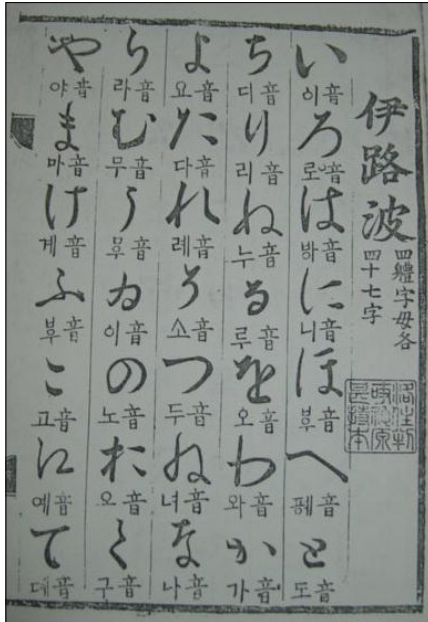 伊路波
四體字母各
四十七字
い 이音 ろ 로音 は 音 に 니音 ほ 音 へ 音 と 도音
ち 디音 り 리音 ぬ 누音 る 루音 を 오音 わ 와音 か 가音
よ 요音 た 다音 れ 례音 そ 소音 つ 두音 ね 녀音 な 나音
ら 라音 む 무音 う 音 ゐ 이音 の 노音 お 오音 く 구音
や 야音 ま 마音 け 계音 ふ 音 こ 고音 え 예音 て 뎨音